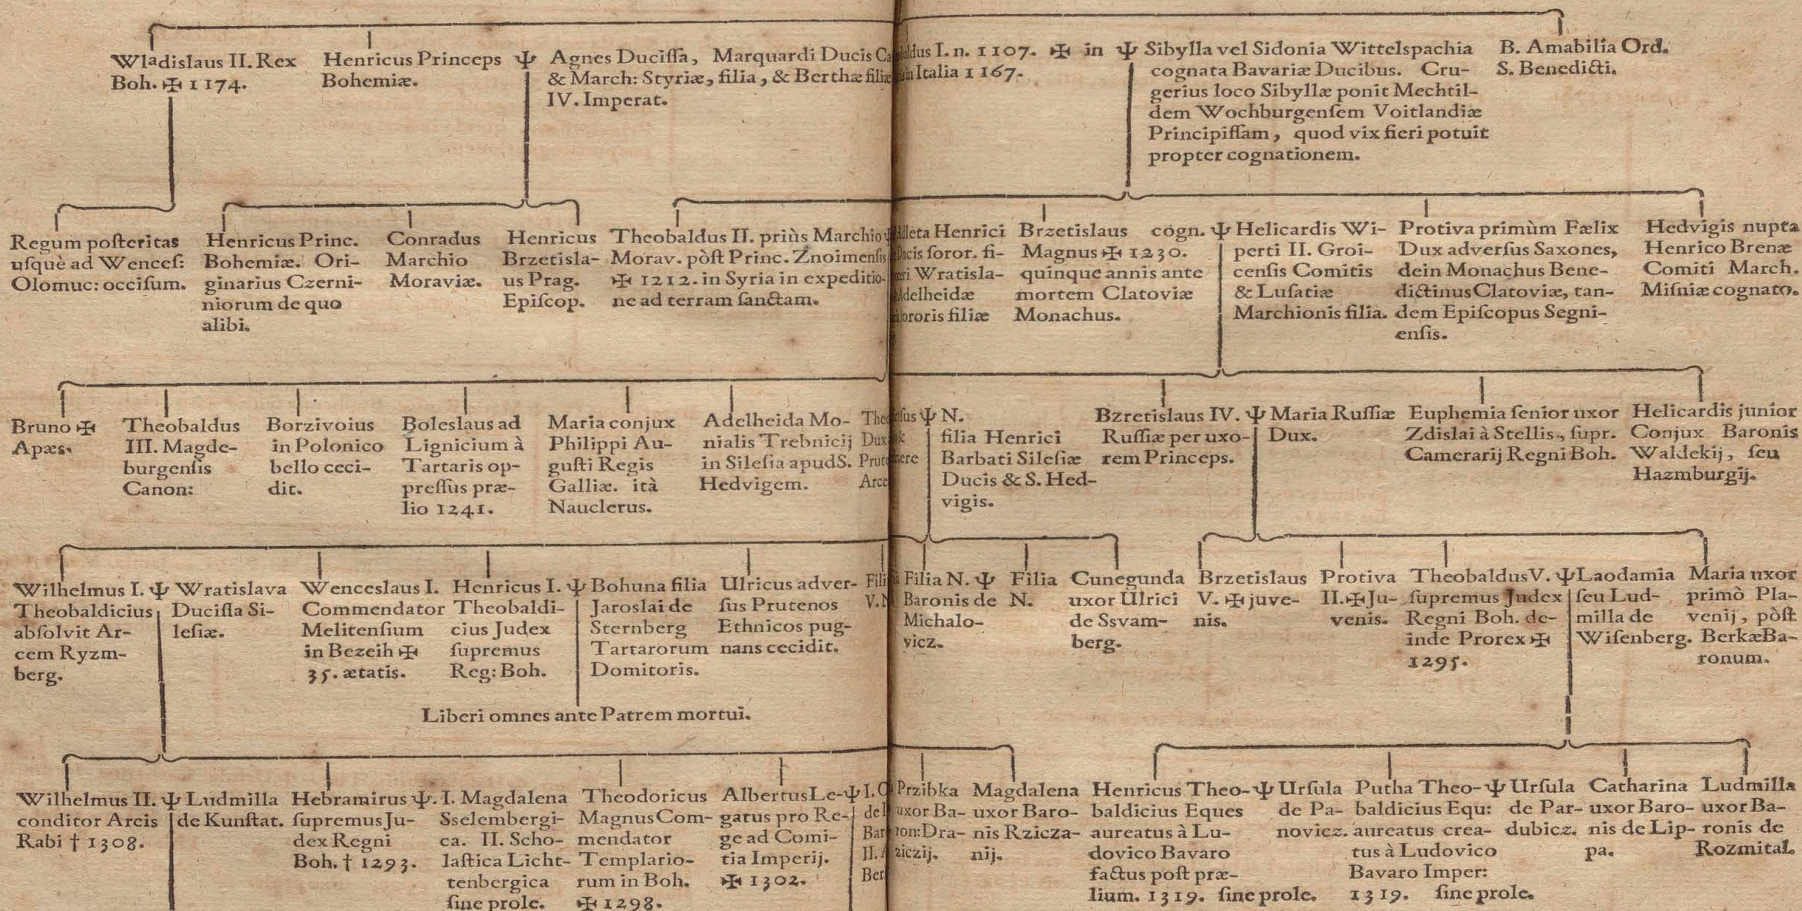 Wladislaus II. Rex
Boh. ✠ 1174.
Henricus Princeps Ψ
Bohemiæ.
Agnes Ducissa, Marquardi Ducis
& March: Styriæ, filia, & Berthæ filiæ
IV. Imperat.
I. n. 1107. ✠ in Ψ
Italia 1167.
Sibylla vel Sidonia Wittelspachia
cognata Bavariæ Ducibus. Cru-
gerius loco Sibyllæ ponit Mechtil-
dem Wochburgensem Voitlandiæ
Principissam, quod vix fieri potuit
propter cognationem.
B. Amabilia Ord.
S. Benedicti.
Regum posteritas
usquè ad Wences:
Olomuc: occisum.
Henricus Princ.
Bohemiæ. Ori-
ginarius Czerni-
niorum de quo
alibi.
Conradus
Marchio
Moraviæ.
Henricus
Brzetisla-
us Prag.
Episcop.
Theobaldus II. priùs Marchio
Morav. pòst Princ. Znoimensis
✠ 1212. in Syria in expeditio-
ne ad terram sanctam.
Henrici
soror. fi-
Wratisla-
Adelheidæ
sororis filiæ
Brzetislaus cogn. Ψ
Magnus ✠ 1230.
quinque annis ante
mortem Clatoviæ
Monachus.
Helicardis Wi-
perti II. Groi-
censis Comitis
& Lusatiæ
Marchionis filia.
Protiva primùm Fælix
Dux adversus Saxones,
dein Monachus Bene-
dictinus Clatoviæ, tan-
dem Episcopus Segni-
ensis.
Hedvigis nupta
Henrico Brenæ
Comiti March.
Misniæ cognato.
Bruno ✠
Apæs.
Theobaldus
III. Magde-
burgensis
Canon:
Borzivoius
in Polonico
bello ceci-
dit.
Boleslaus ad
Lignicium à
Tartaris op-
pressus præ-
lio 1241.
Maria conjux
Philippi Au-
gusti Regis
Galliæ. ità
Nauclerus.
Adelheida Mo-
nialis Trebnicij
in Silesia apud S.
Hedvigem.
Ψ N.
filia Henrici
Barbati Silesiæ
Ducis & S. Hed-
vigis.
Bzretislaus IV. Ψ
Russiæ per uxo-
rem Princeps.
Maria Russiæ
Dux.
Euphemia senior uxor
Zdislai à Stellis, supr.
Camerarij Regni Boh.
Helicardis junior
Conjux Baronis
Waldekij, seu
Hazmburgij.
Wilhelmus I. Ψ
Theobaldicius
absolvit Ar-
cem Ryzm-
berg.
Wratislava
Ducissa Si-
lesiæ.
Wenceslaus I.
Commendator
Melitensium
in Bezeih ✠
35. ætatis.
Henricus I. Ψ
Theobaldi-
cius Judex
supremus
Reg: Boh.
Bohuna filia
Jaroslai de
Sternberg
Tartarorum
Domitoris.
Ulricus adver-
sus Prutenos
Ethnicos pug-
nans cecidit.
Liberi omnes ante Patrem mortui.
Filia N. Ψ
Baronis de
Michalo-
vicz.
Filia
N.
Cunegunda
uxor Ulrici
de Ssvam-
berg.
Brzetislaus
V. ✠ juve-
nis.
Protiva
II. ✠ Ju-
venis.
Theobaldus V. Ψ
supremus Judex
Regni Boh. de-
inde Prorex ✠
1295.
Laodamia
seu Lud-
milla de
Wisenberg.
Maria uxor
primò Pla-
venij, pòst
Berkæ Ba-
ronum.
Wilhelmus II. Ψ
conditor Arcis
Rabi † 1308.
Ludmilla
de Kunstat.
Hebramirus Ψ.
supremus Ju-
dex Regni
Boh. † 1293.
I. Magdalena
Sselembergi-
ca. II. Scho-
lastica Licht-
tenbergica
sine prole.
Theodoricus
Magnus Com-
mendator
Templario-
rum in Boh.
✠ 1298.
Albertus Le- Ψ
gatus pro Re-
ge ad Comi-
tia Imperij.
✠ 1302.
Przibka
uxor Ba-
ron: Dra-
ziczij.
Magdalena
uxor Baro-
nis Rzicza-
nij.
Henricus Theo- Ψ
baldicius Eques
aureatus à Lu-
dovico Bavaro
factus post præ-
lium. 1319. sine prole.
Ursula
de Pa-
noviez.
Putha Theo- Ψ
baldicius Equ:
aureatus crea-
tus à Ludovico
Bavaro Imper:
1319. sine prole.
Ursula
de Par-
dubicz.
Catharina
uxor Baro-
nis de Lip-
pa.
Ludmilla
uxor Ba-
ronis de
Rozmital.